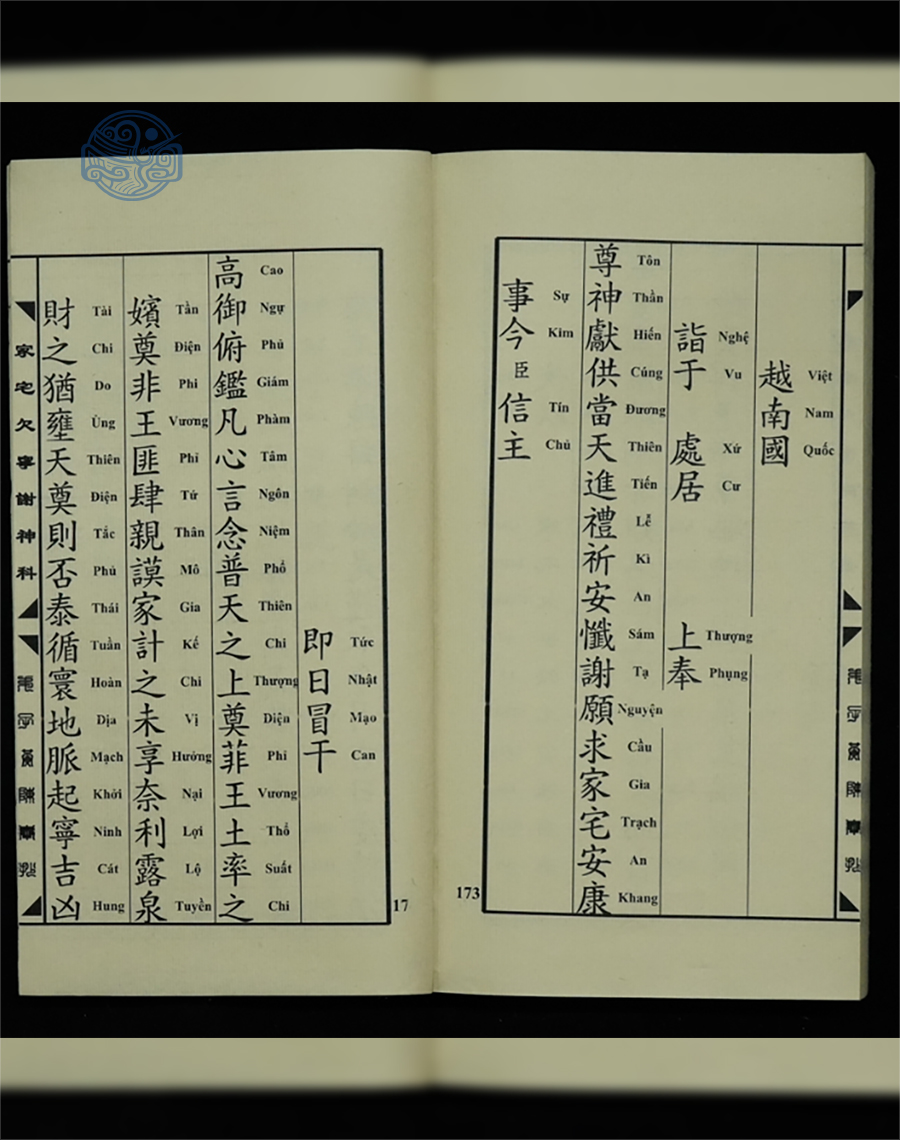 越南國
Việt Nam Quốc
詣于 處居 上奉
Nghệ Vu Xứ Cư Thượng Phụng
尊神獻供當天進禮祈安懺謝願求家宅安康
Tôn Thần Hiến Cúng Đương Thiên Tiến Lễ Kì An Sám Tạ Nguyện Cầu Gia Trạch An Khang
事今臣信主
Sự Kim Tín Chủ
173
即日冒干
Tức Nhật Mạo Can
高御俯鑑凡心言念普天之上奠菲王土率之
Cao Ngự Phủ Giám Phàm Tâm Ngôn Niệm Phổ Thiên Chi Thượng Diện Phi Vương Thổ Suất Chi
嬪奠非王匪肆親謨家計之未享奈利露泉
Tần Điện Phi Vương Phi Tứ Thân Mô Gia Kế Chi Vị Hưởng Nại Lợi Lộ Tuyền
財之猶壅天奠則否泰循寰地脈起寧吉凶
Tài Chi Do Ủng Thiên Điện Tắc Phủ Thái Tuần Hoàn Địa Mạch Khởi Ninh Cát Hung
家宅欠寧謝神科
17